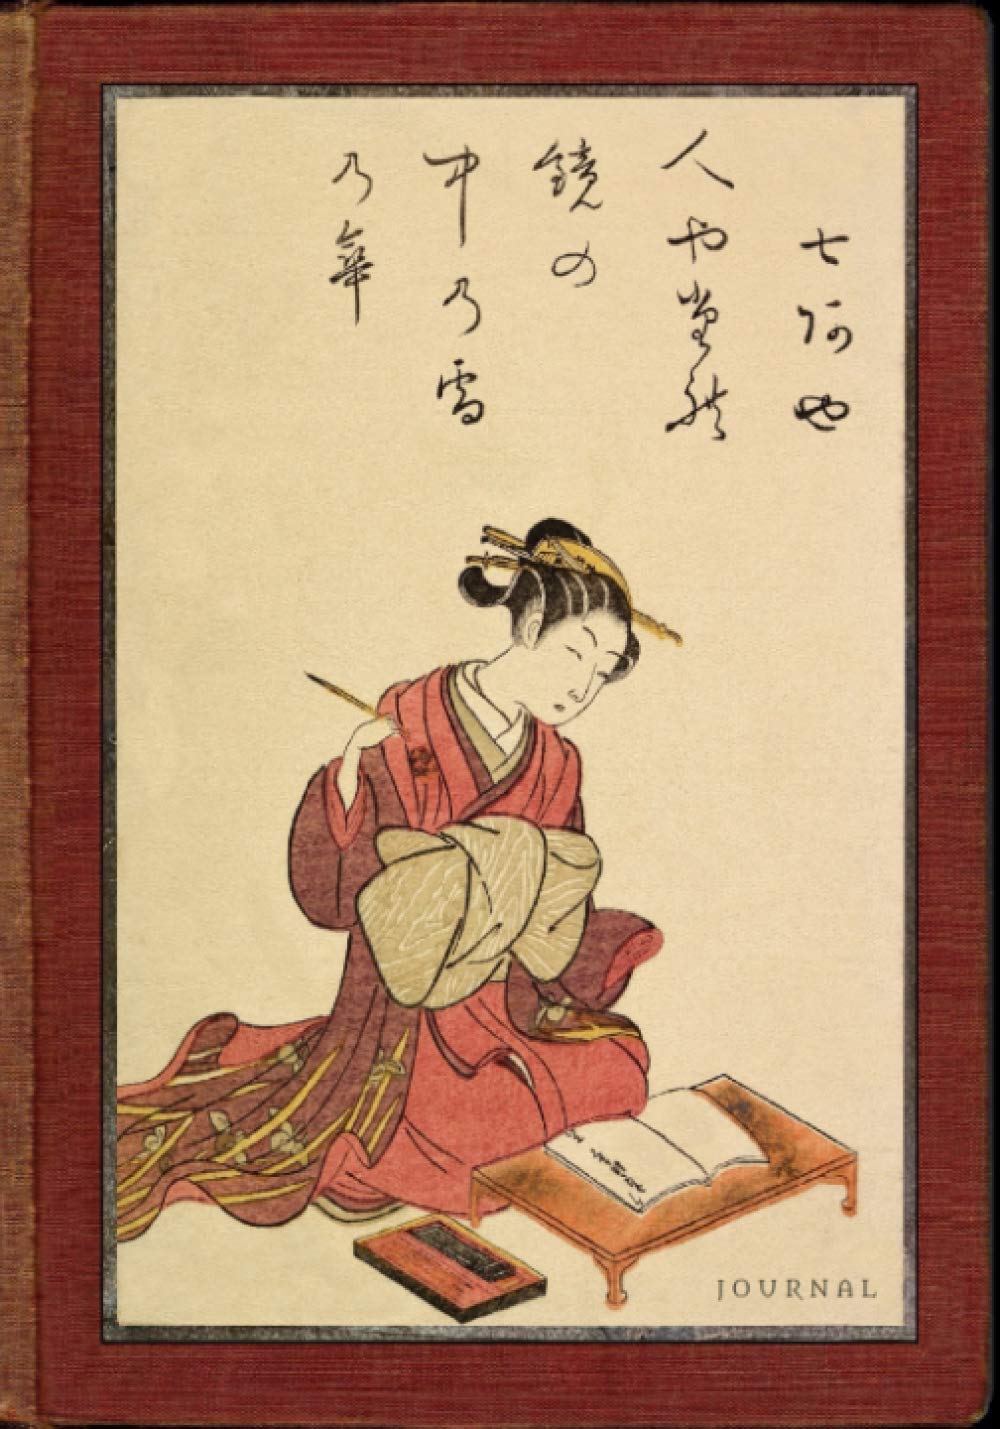 七阿也
人や堂
鏡の
中乃雪
乃華
JOURNAL